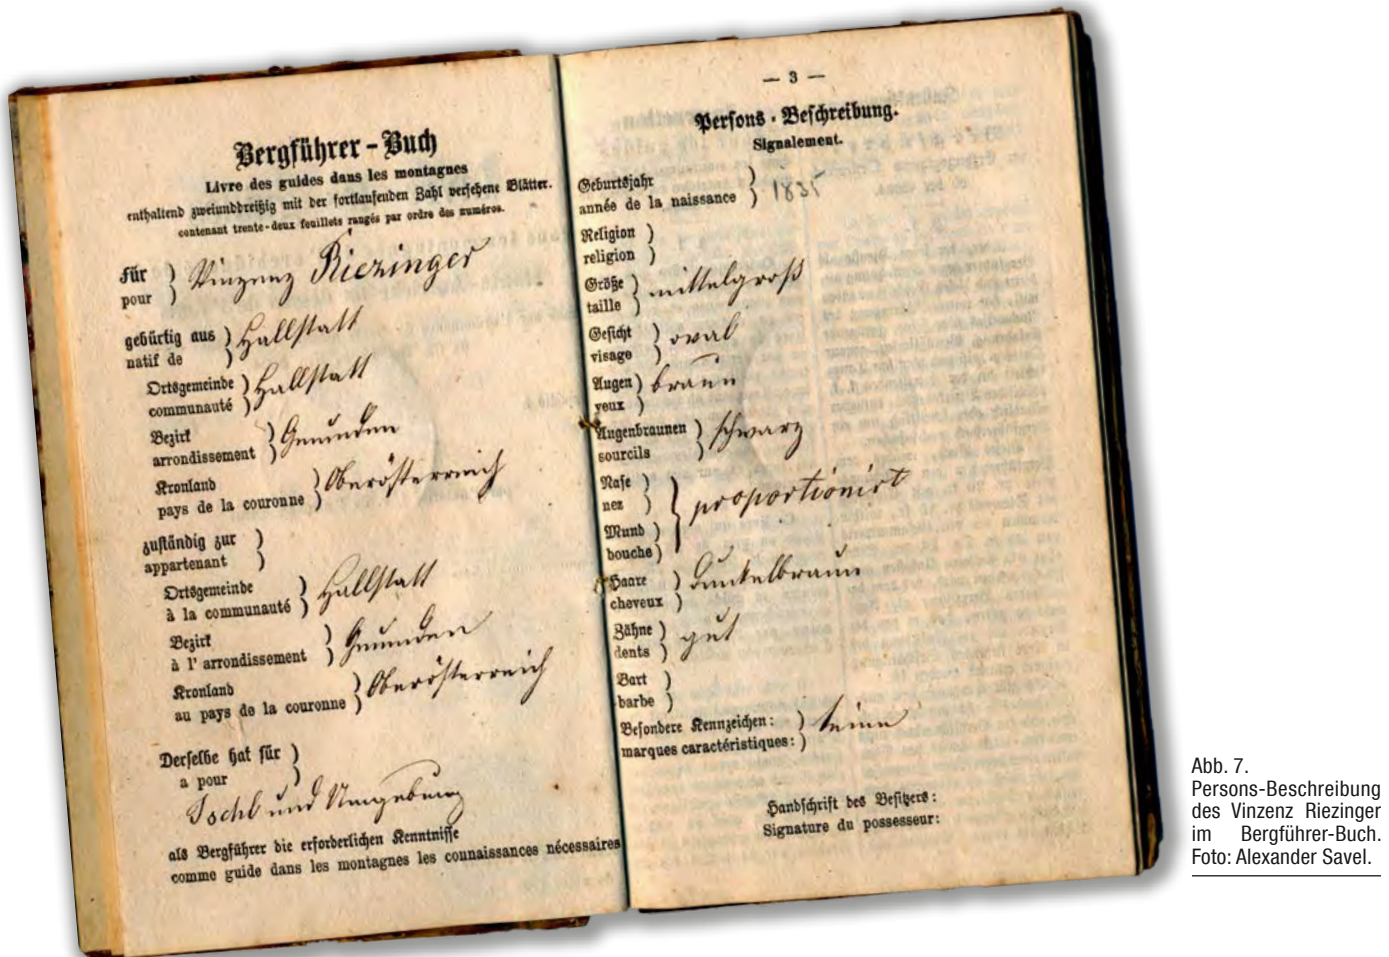 Bergführer-Buch
Livre des guides dans les montagnes
enthaltend zweiunddreißig mit der fortlaufenden Zahl versehene Blätter.
contenant trente-deux feuillets rangés par ordre des numéros.
Für
pour
Vinzenz Riezinger
gebürtig aus
natif de
Hallstatt
Ortsgemeinde
communauté
Hallstatt
Bezirk
arrondissement
Gmunden
Kronland
pays de la couronne
Oberösterreich
zuständig zur
appartenant
Ortsgemeinde
à la communauté
Hallstatt
Bezirk
à l' arrondissement
Gmunden
Kronland
au pays de la couronne
Oberösterreich
Derselbe hat für
a pour
Ischl und Umgebung
als Bergführer die erforderlichen Kenntnisse
comme guide dans les montagnes les connaissances nécessaires
— 3 —
Persons-Beschreibung.
Signalement.
Geburtsjahr
année de la naissance
1835
Religion
religion
Größe
taille
mittelgroß
Gesicht
visage
oval
Augen
yeux
braun
Augenbraunen
sourcils
schwarz
Nase
nez
Mund
bouche
proportionirt
Haare
cheveux
dunkelbraun
Zähne
dents
gut
Bart
barbe
Besondere Kennzeichen:
marques caractéristiques:
keine
Handschrift des Besitzers:
Signature du possesseur:
Abb. 7.
Persons-Beschreibung
des Vinzenz Riezinger
im Bergführer-Buch.
Foto: Alexander Savel.